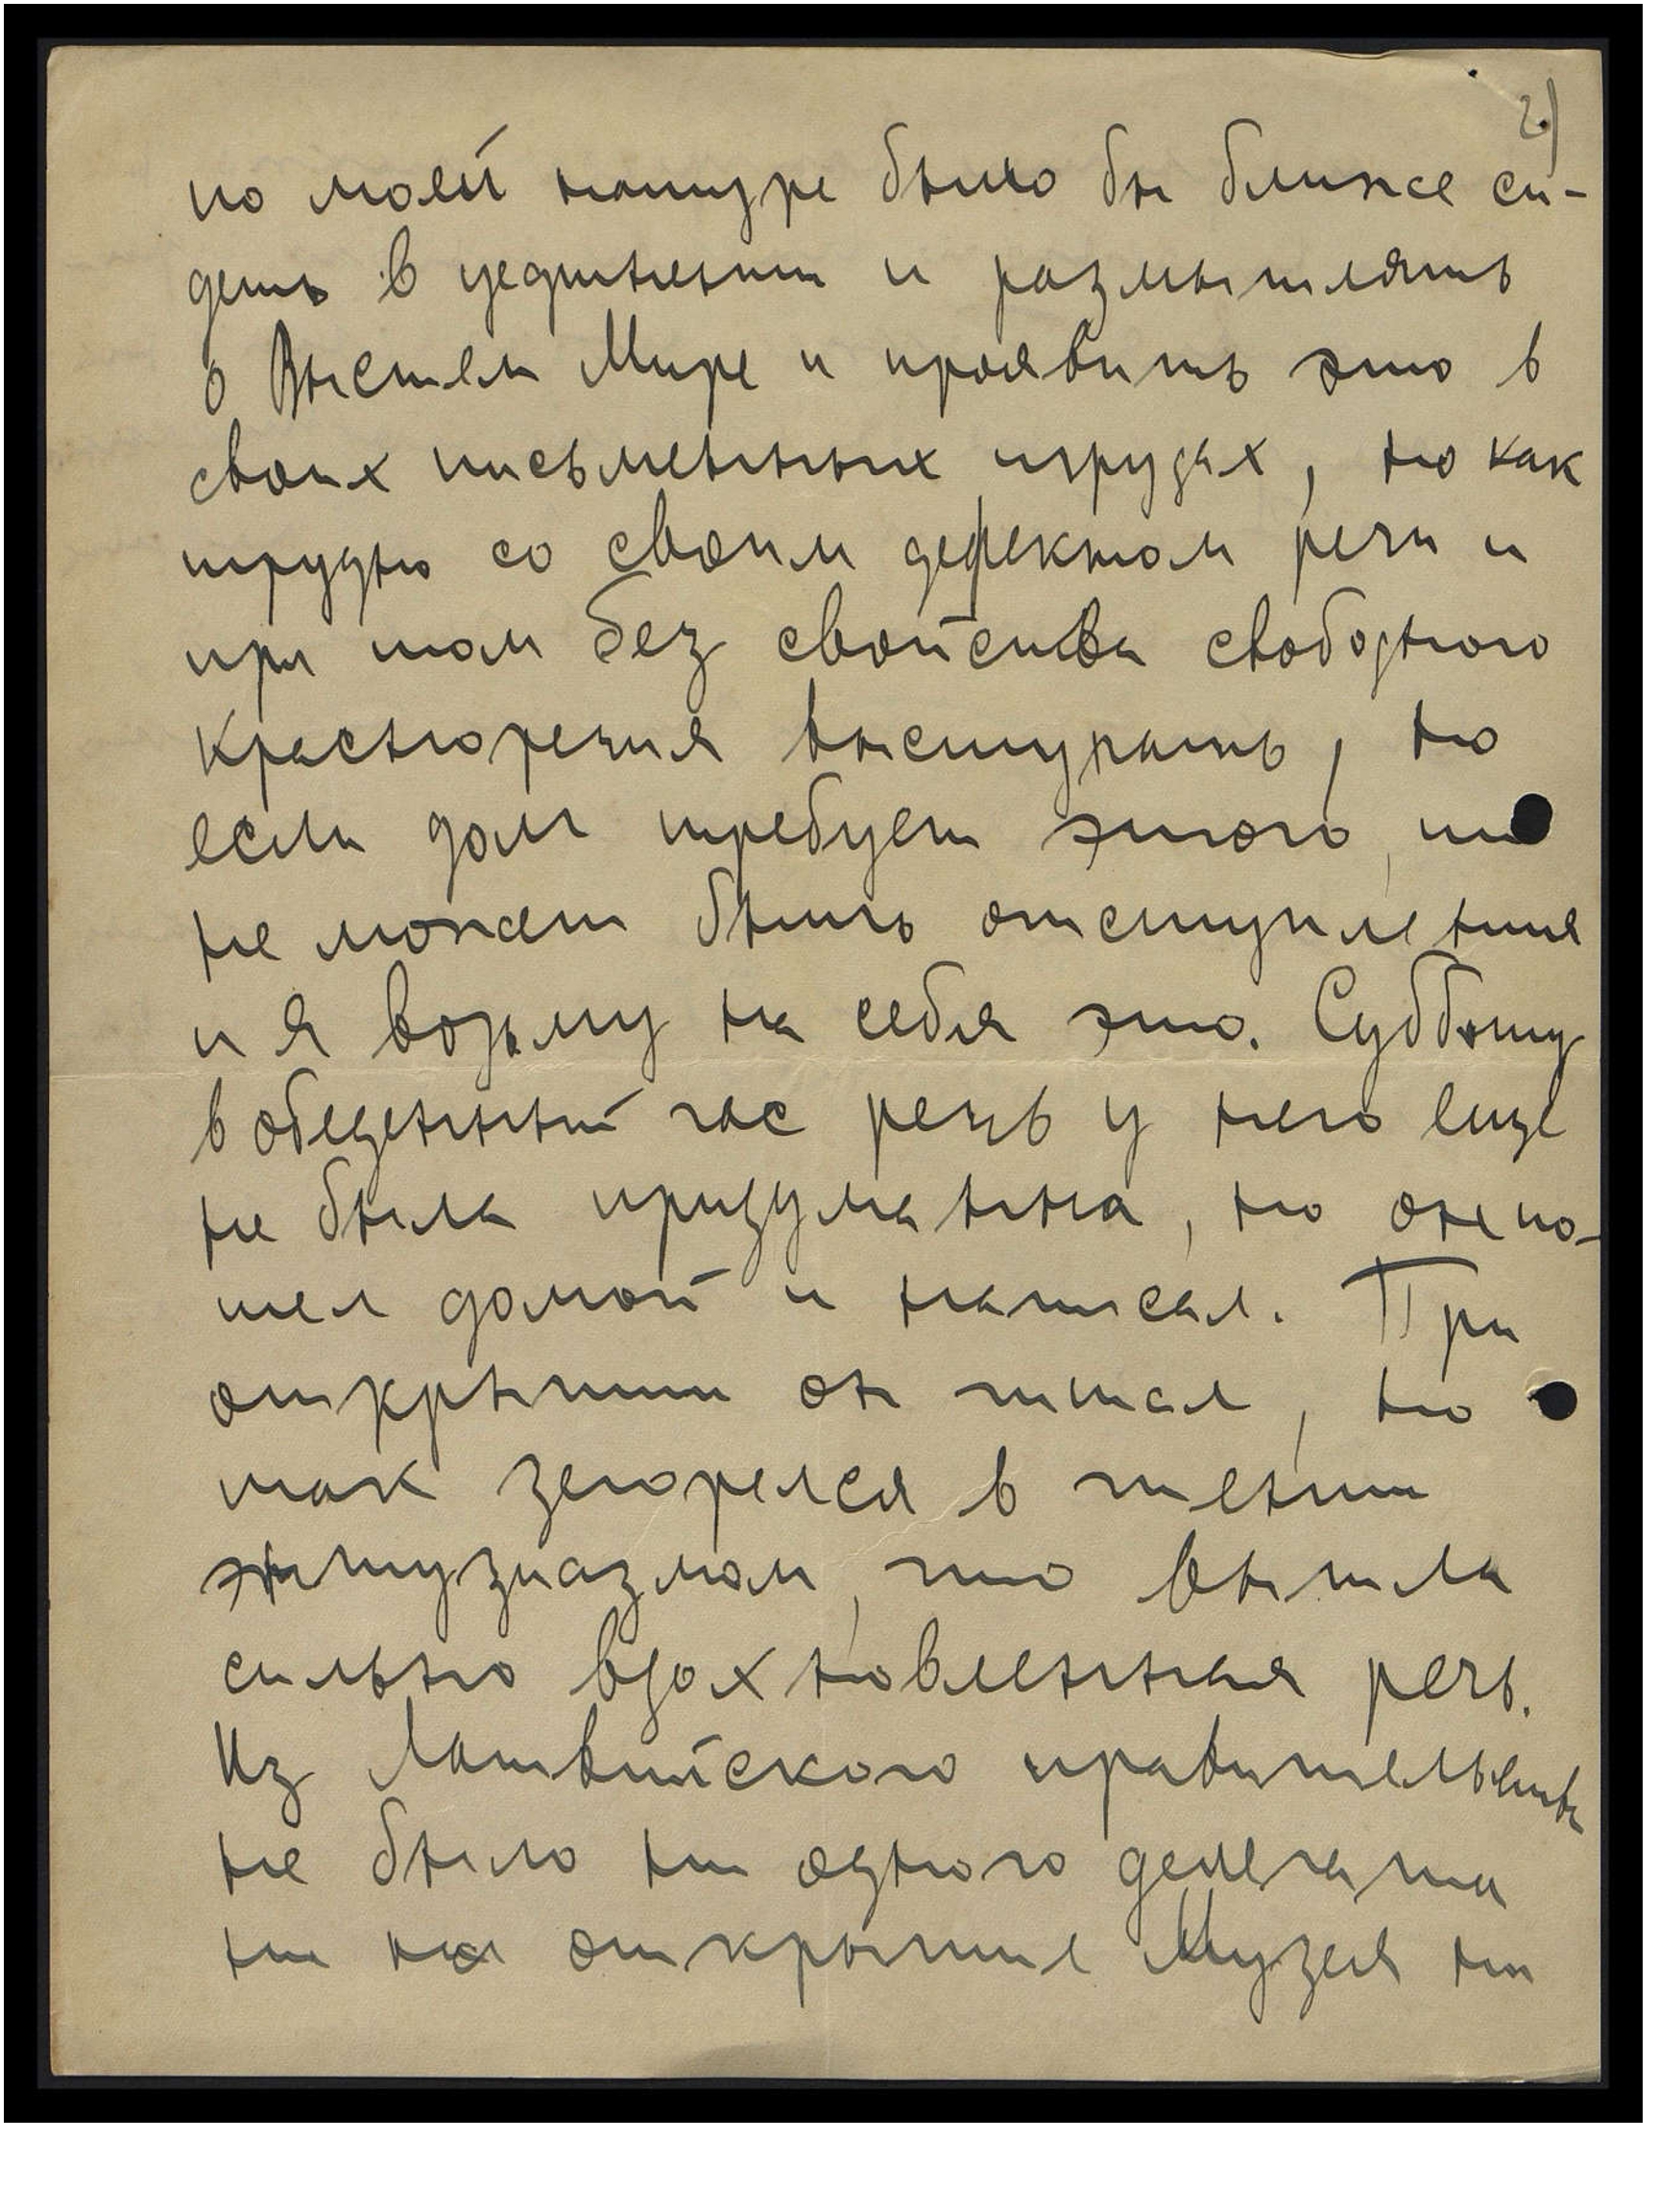 2)
по моей натуре было бы ближе си-
деть в уединении и размышлять
о Высшем Мире и проявить это в
своих письменных трудах, но как
трудно со своим дефектом речи и
при том без свойства свободного
красноречия выступать, но
если долг требует этого, то
не может быть отступления
и я возьму на себя это. Субботу
в обеденный час речь у него еще
не была придумана, но он по-
шел домой и написал. При
открытии он читал, но
так загорелся в чтении
энтузиазмом, что вышла
сильно вдохновленная речь.
Из Латвийского правительства
не было ни одного делегата
ни на открытие Музея ни